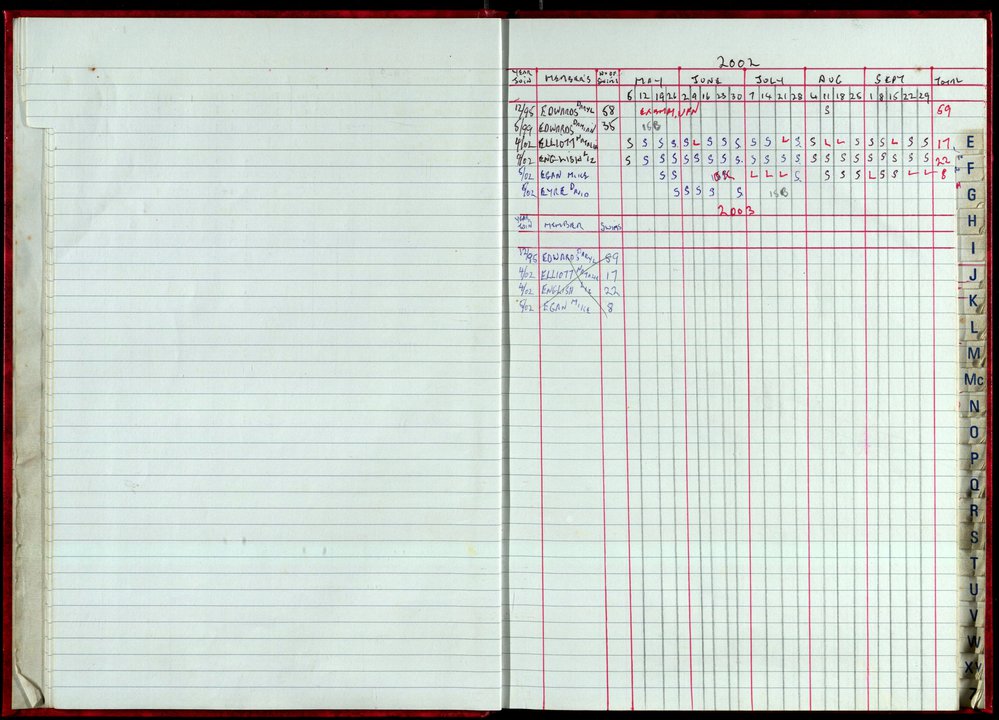 2002
YEAR JOIN MEMBER'S NO OF SWIMS MAY JUNE JULY AUG SEPT TOTAL
5 12 19 26 2 9 16 23 30 7 14 21 28 4 11 18 25 1 8 15 22 29
12/95 EDWARDS DARYL 58 S 59
5/99 EDWARDS DAMIAN 35
4/02 ELLIOTT S S S S S L S S S S S S L S S L L S S S L S S 17
4/02 ENGLISH LIZ S S S S S S S S S S S S S S S S S S S S S S 22
5/02 EGAN MIKE S S L L L S S S S L S S L L 8
5/02 EYRE DAVID S S S S S
2003
YEAR JOIN MEMBER SWIMS
12/95 EDWARDS DARYL 59
4/02 ELLIOTT 17
4/02 ENGLISH LIZ 22
5/02 EGAN MIKE 8
E
F
G
H
I
J
K
L
M
Mc
N
O
P
Q
R
S
T
U
V
W